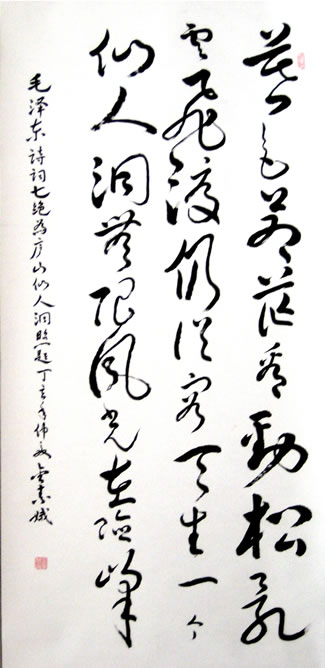 暮色苍茫看劲松乱
云飞渡仍从容天生一个
仙人洞无限风光在险峰
毛泽东诗词七绝为庐山仙人洞照题丁亥年